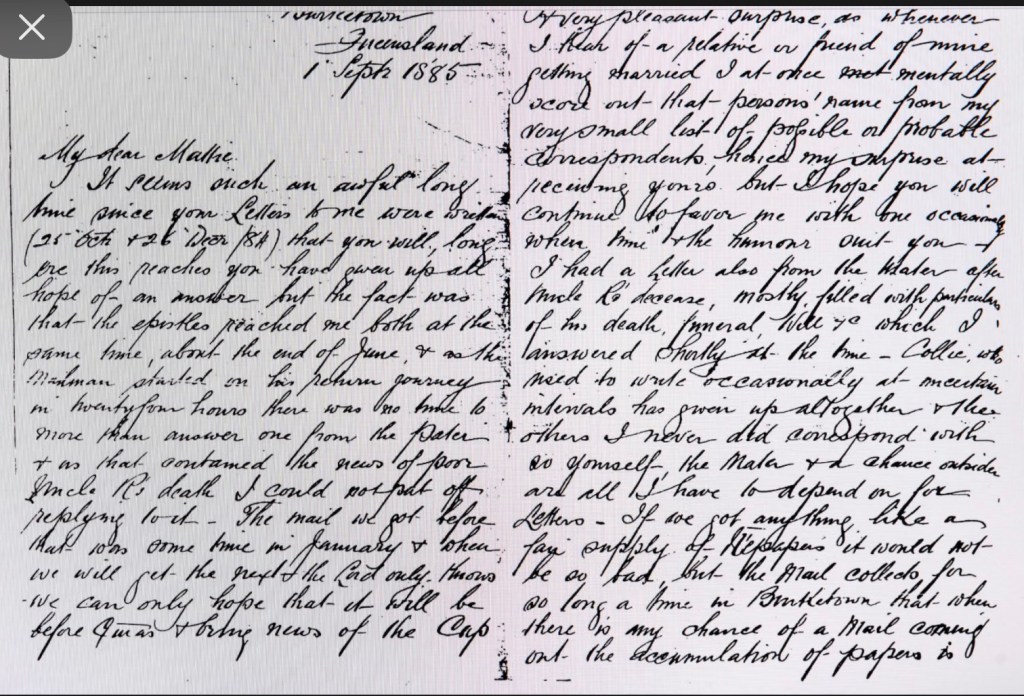 Burketown
Queensland
1 Septr 1885
My dear Mattie
It seems such an awful long
time since your Letters to me were written
(25 Octr & 26 Decr /84) that you will, long
ere this reaches you have given up all
hope of an answer but the fact was
that the epistles reached me both at the
same time, about the end of June, & as the
Mailman started on his return journey
in twentyfour hours there was no time to
more than answer one from the Pater
& as that contained the news of poor
Uncle R's death I could not put off
replying to it - The mail we got before
that was some time in January & when
we will get the next the Lord only knows
we can only hope that it will be
before Xmas & bring news of the Cup
A very pleasant surprise, as whenever
I hear of a relative or friend of mine
getting married I at once mentally
score out that persons' name from my
very small list of possible or probable
correspondents, hence my surprise at
receiving yours but I hope you will
continue to favor me with one occasionally
when time & the humour suit you -
I had a Letter also from the Mater after
Uncle R's decease, mostly filled with particulars
of his death, funeral, Will &c which I
answered shortly at the time - Collie, who
used to write occasionally at uncertain
intervals has given up altogether & the
others I never did correspond with
so yourself, the Mater & a chance outsider
are all I have to depend on for
Letters - If we got anything like a
fair supply of Newspapers it would not
be so bad, but the Mail collects for
so long a time in Burketown that when
there is any chance of a Mail coming
out the accumulation of papers is